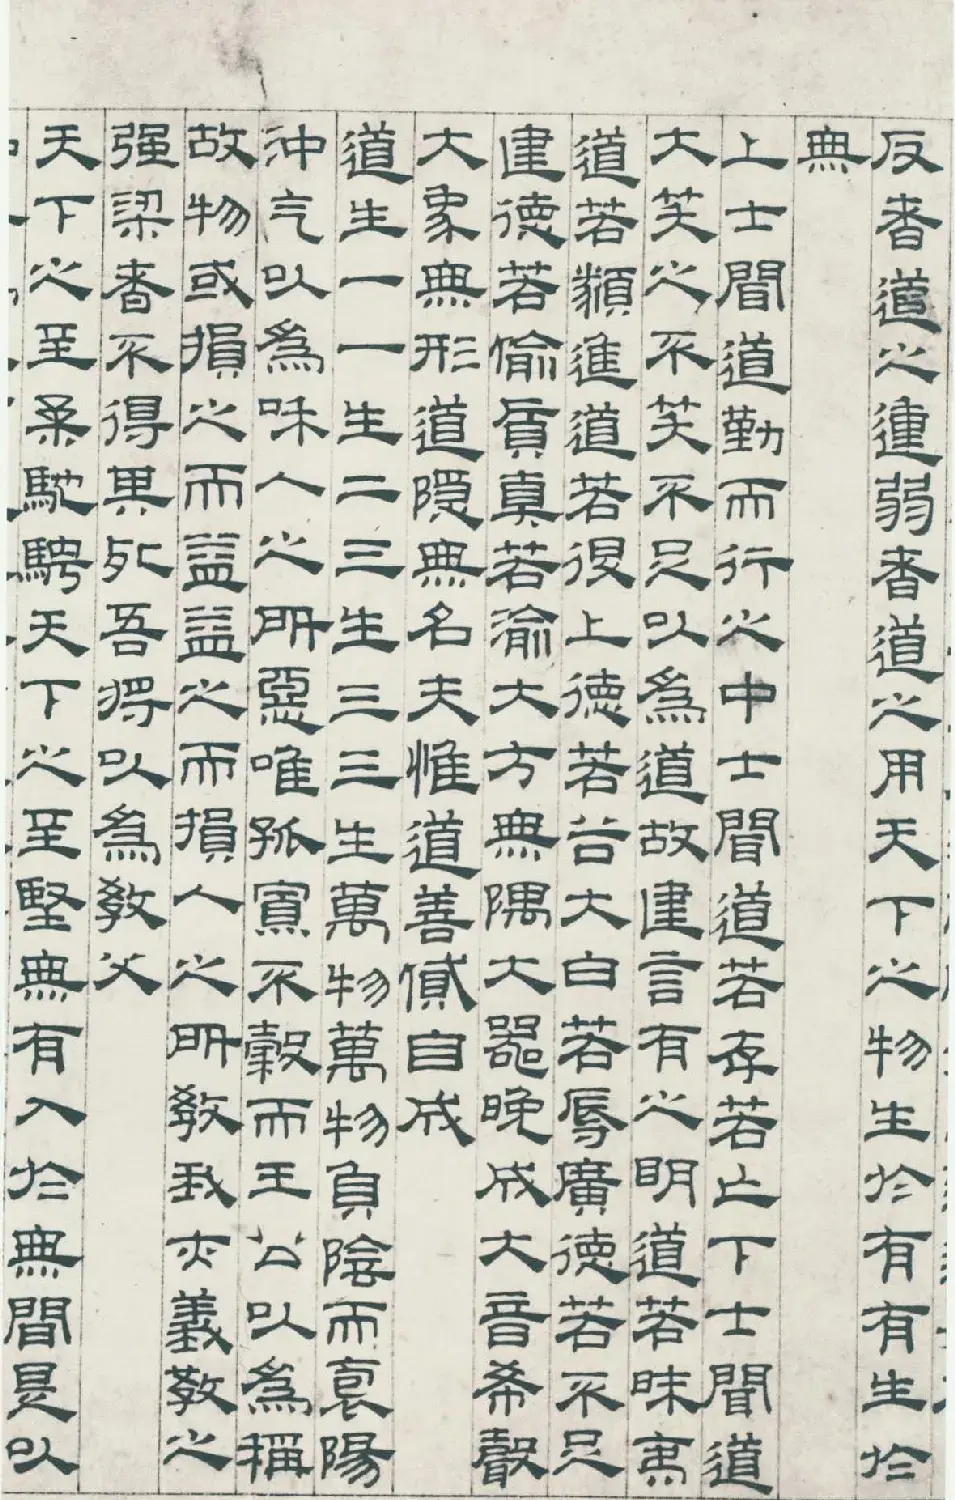 反者道之連弱者道之用天下之物生於有有生於
無
上士聞道勤而行之中士聞道若存若亡下士聞道
大笑之不笑不足以為道故建言有之明道若昧夷
道若纇進道若退上德若谷大白若辱廣德若不足
建德若偷質真若渝大方無隅大器晚成大音希聲
大象無形道隱無名夫惟道善貸自成
道生一一生二二生三三生萬物萬物負陰而褱陽
沖气以為和人之所惡唯孤寡不穀而王公以為稱
故物或損之而益益之而損人之所教教我亦義教之
强梁者不得其死吾將以為教父
天下之至柔馳騁天下之至堅無有入於無間是以